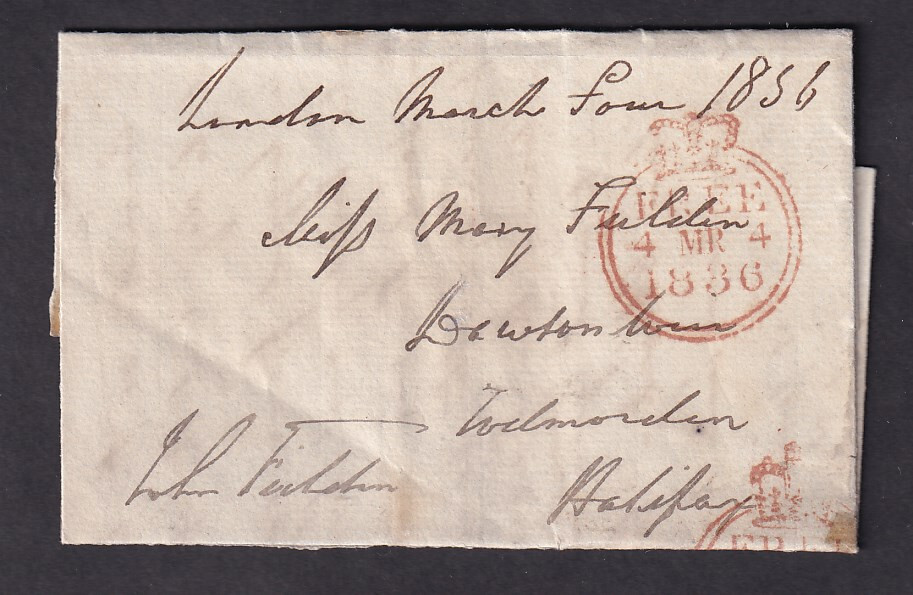 London March Four 1836
FREE
Miss Mary Fielden
4 MR 4
1836
Dawson Weir
Todmorden
John Fielden
Halifax
FREE